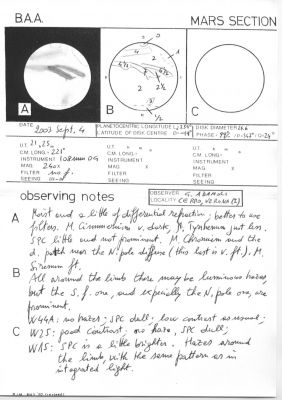 B.A.A. MARS SECTION
A B C
DATE 2003 Sept. 4
PLANETOCENTRIC LONGITUDE Ls 234°
LATITUDE OF DISK CENTRE
DISK DIAMETER
PHASE
U.T. 21.25
C.M. LONG. 221°
INSTRUMENT 108mm OG
MAG. 240x
FILTER no f.
SEEING
U.T.
C.M. LONG.
INSTRUMENT
MAG. X
FILTER
SEEING
U.T.
C.M. LONG.
INSTRUMENT
MAG. X
FILTER
SEEING
observing notes
OBSERVER G. Adamoli
LOCALITY VERONA
A Moist and a little of differential refraction; better to use
filters. M. Cimmerium v. dusk, M. Tyrrhenum just less.
SPC little and not prominent. M. Chronium and the
d. patch near the N. pole diffuse (this last is v. ft.). M.
Sirenum ft.
B All around the limb there may be luminous hazes,
but the S. f. one, and especially the N. pole one, are
prominent.
W44A: no hazes; SPC dull; low contrast as usual;
C W25: good contrast, no haze, SPC dull;
W15: SPC is a little brighter. Hazes around
the limb, with the same pattern as in
integrated light.